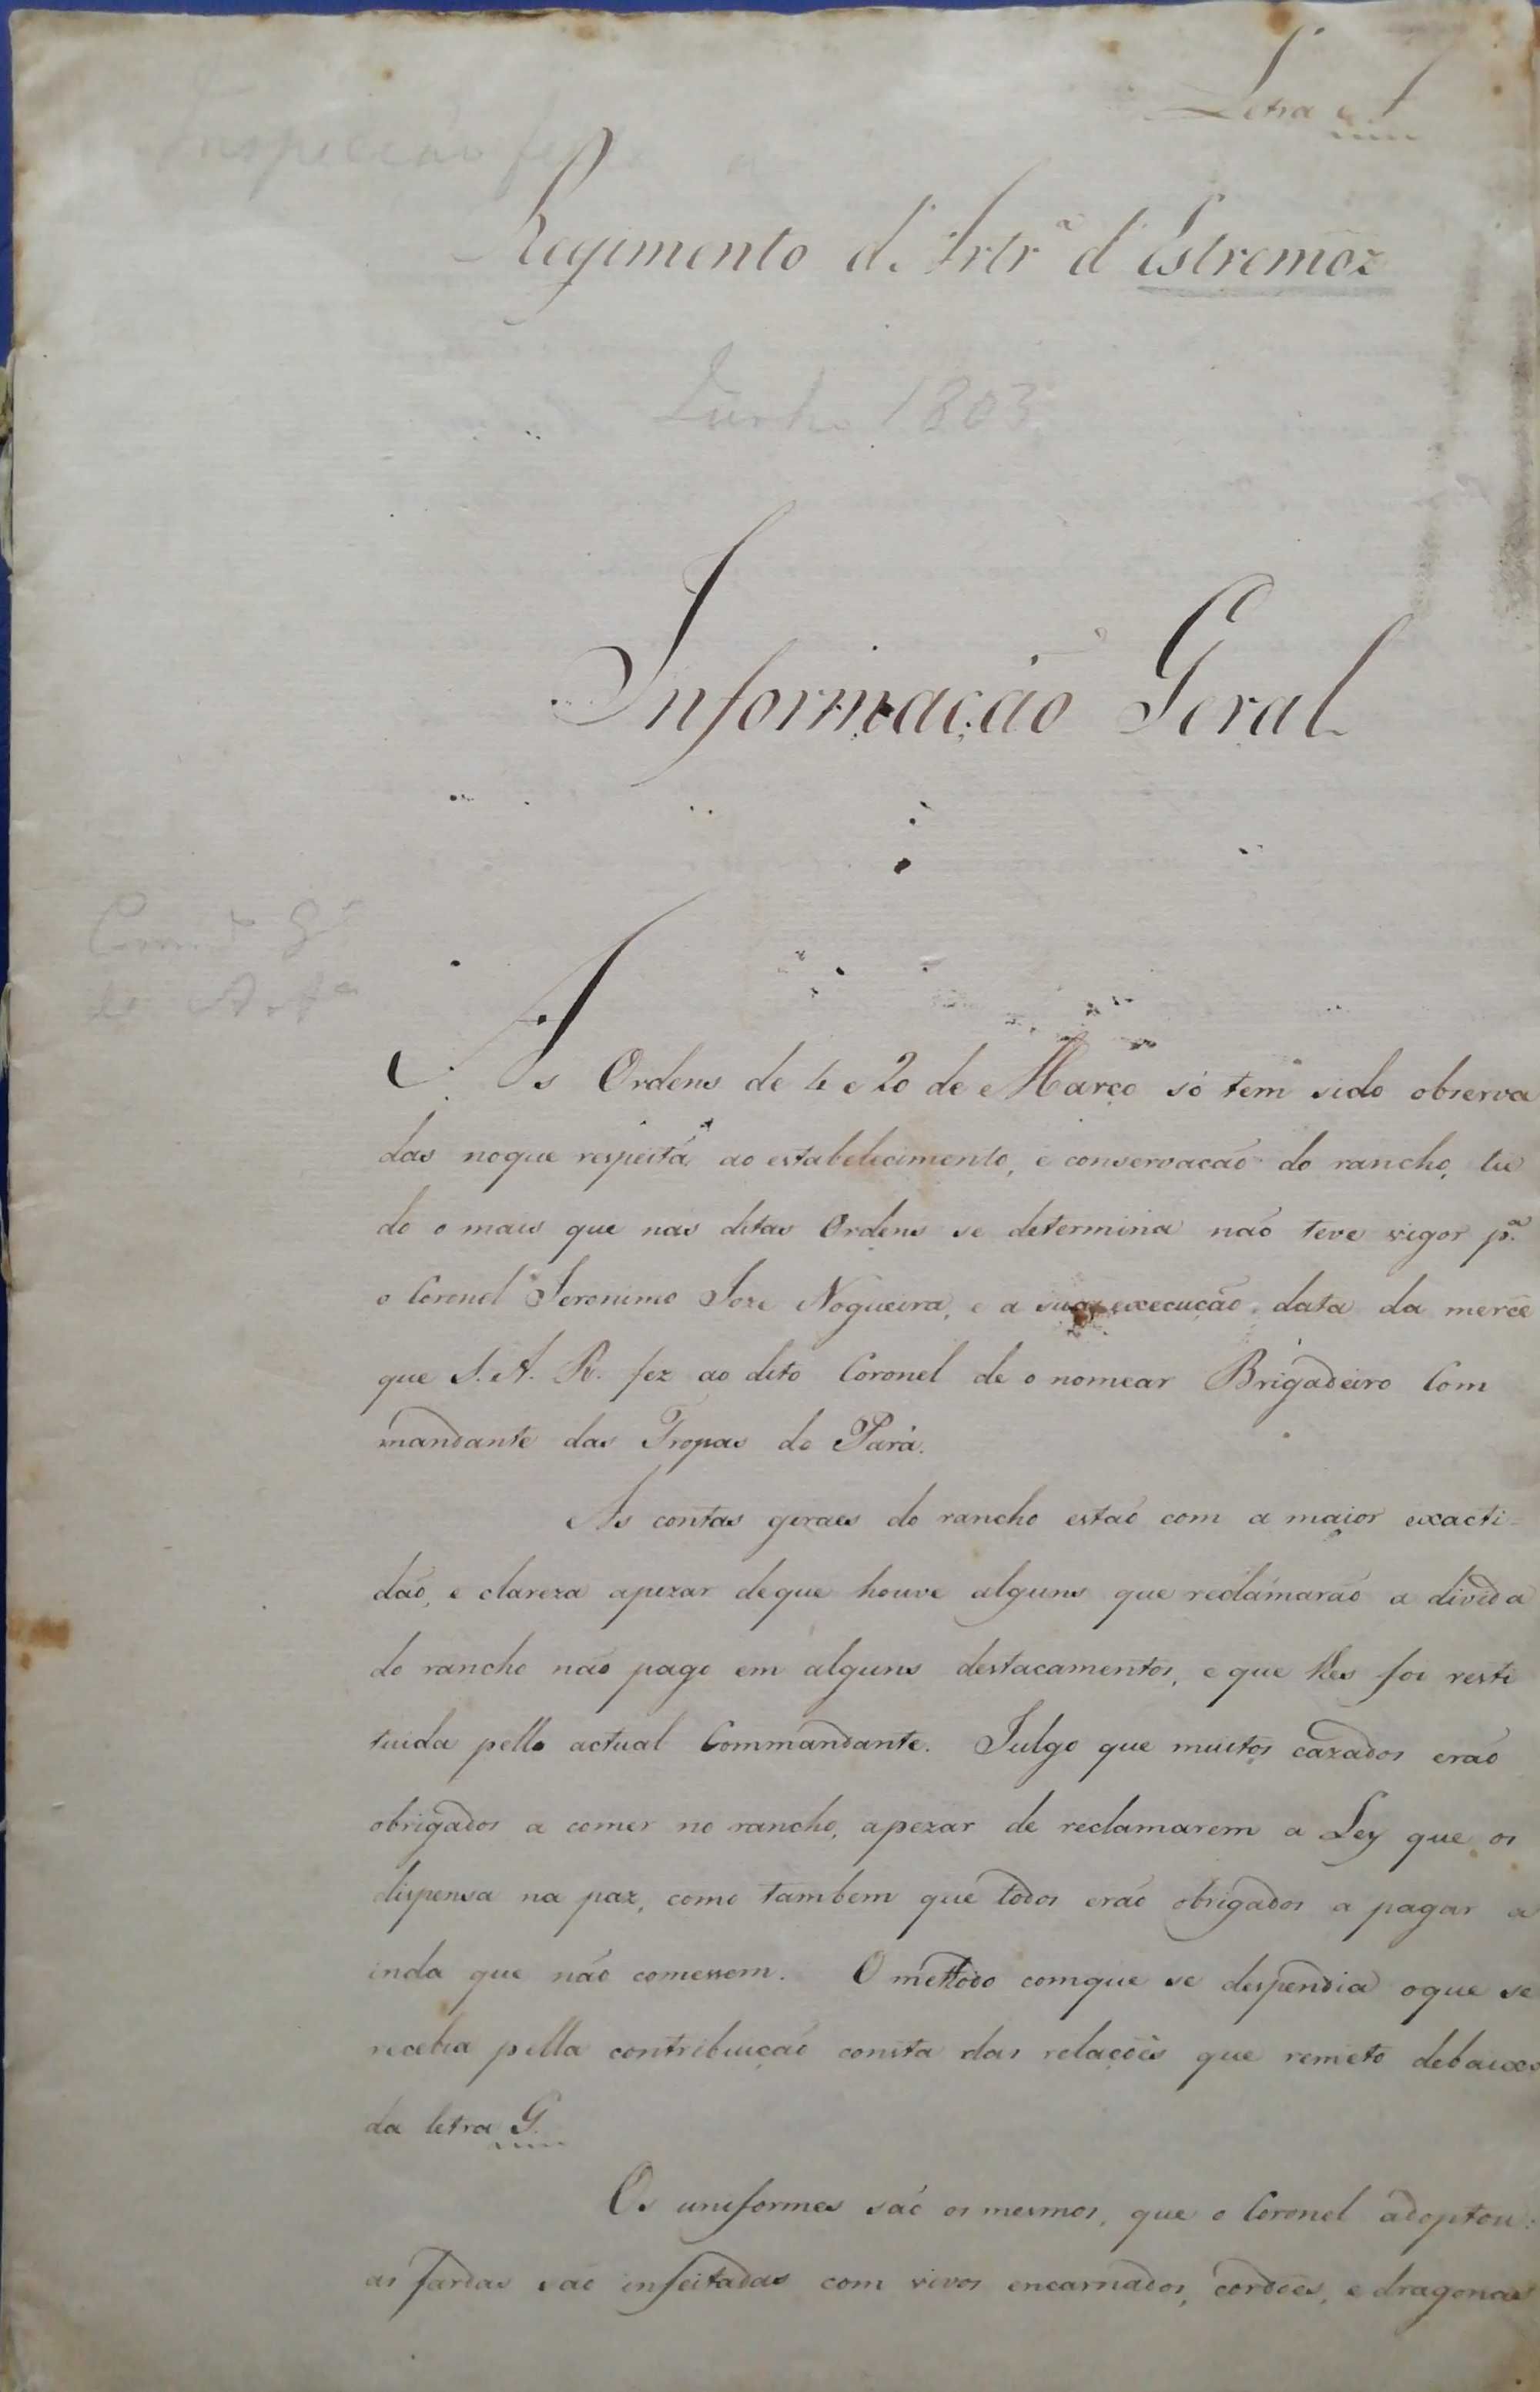 Letra A
Regimento d'Artr.ª d'Estremoz
Junho 1803
Informação Geral
As Ordens de 4 e 20 de Março só tem sido observa
das noque respeita ao estabelecimento, e conservação do rancho, tu
do o mais que nas ditas Ordens se determina não teve vigor p.ª
o Coronel Jeronimo Joze Nogueira, e a sua execução data da merce
que S. A. R. fez ao dito Coronel de o nomear Brigadeiro Com
mandante das Tropas do Pará.
As contas geraes do rancho estão com a maior exacti-
dão, e clareza apezar deque houve alguns que reclamarão a divida
do rancho não pago em alguns destacamentos, e que lhes foi resti
tuida pello actual Commandante. Julgo que muitos cazados erão
obrigados a comer no rancho, apezar de reclamarem a Ley que os
dispensa na paz, como tambem que todos erão obrigados a pagar a
inda que não comessem. O methodo comque se despendia oque se
recebia pella contribuição consta das relações que remeto debaixo
da letra G.
Os uniformes são os mesmos, que o Coronel adoptou:
as fardas são infeitadas com vivos encarnados, cordões, e dragonas